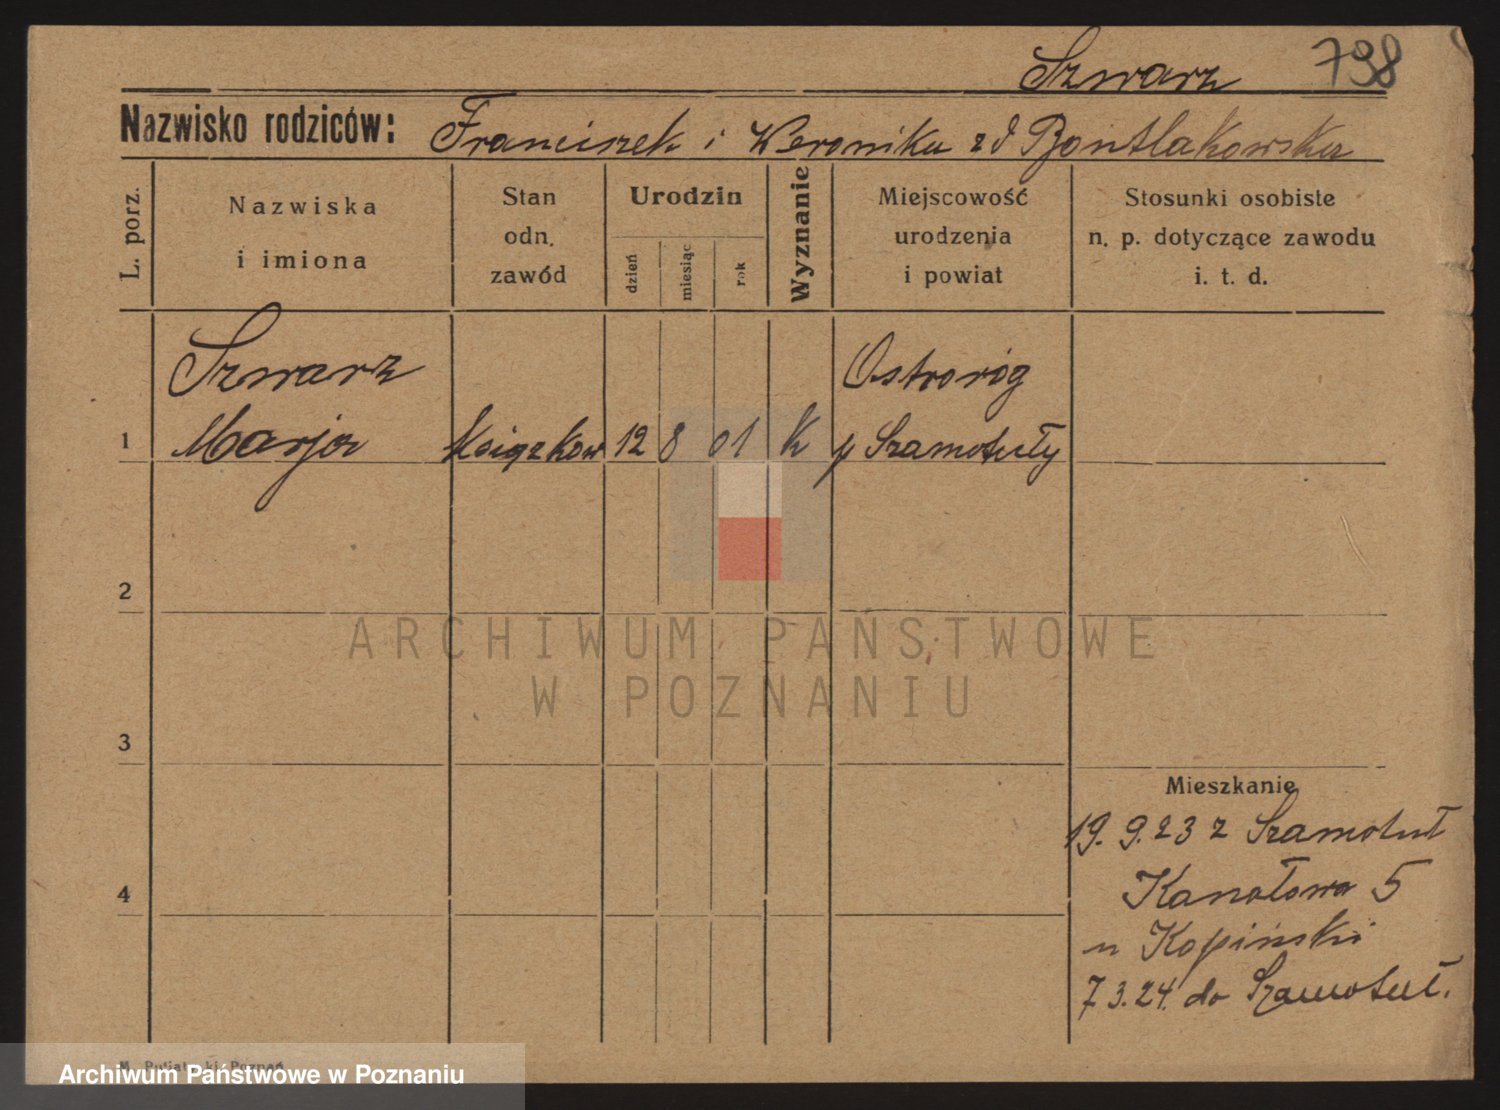 Szwarz 798
Nazwisko rodziców: Franciszek i Weronika zd
L. porz.
Nazwiska
i imiona
Stan
odn.
zawód
Urodzin
dzień
miesiąc
rok
Wyznanie
Miejscowość
urodzenia
i powiat
Stosunki osobiste
n. p. dotyczące zawodu
i. t. d.
Szwarz Ostroróg
1 Marja 12 8 01 k p Szamotuły
2
3
4
Mieszkanie
19. 9. 23 z Szamotuł
Kanałowa 5
u Kopiński
7 3. 24. do Szamotuł.
ARCHIWUM PAŃSTWOWE
W POZNANIU
Archiwum Państwowe w Poznaniu